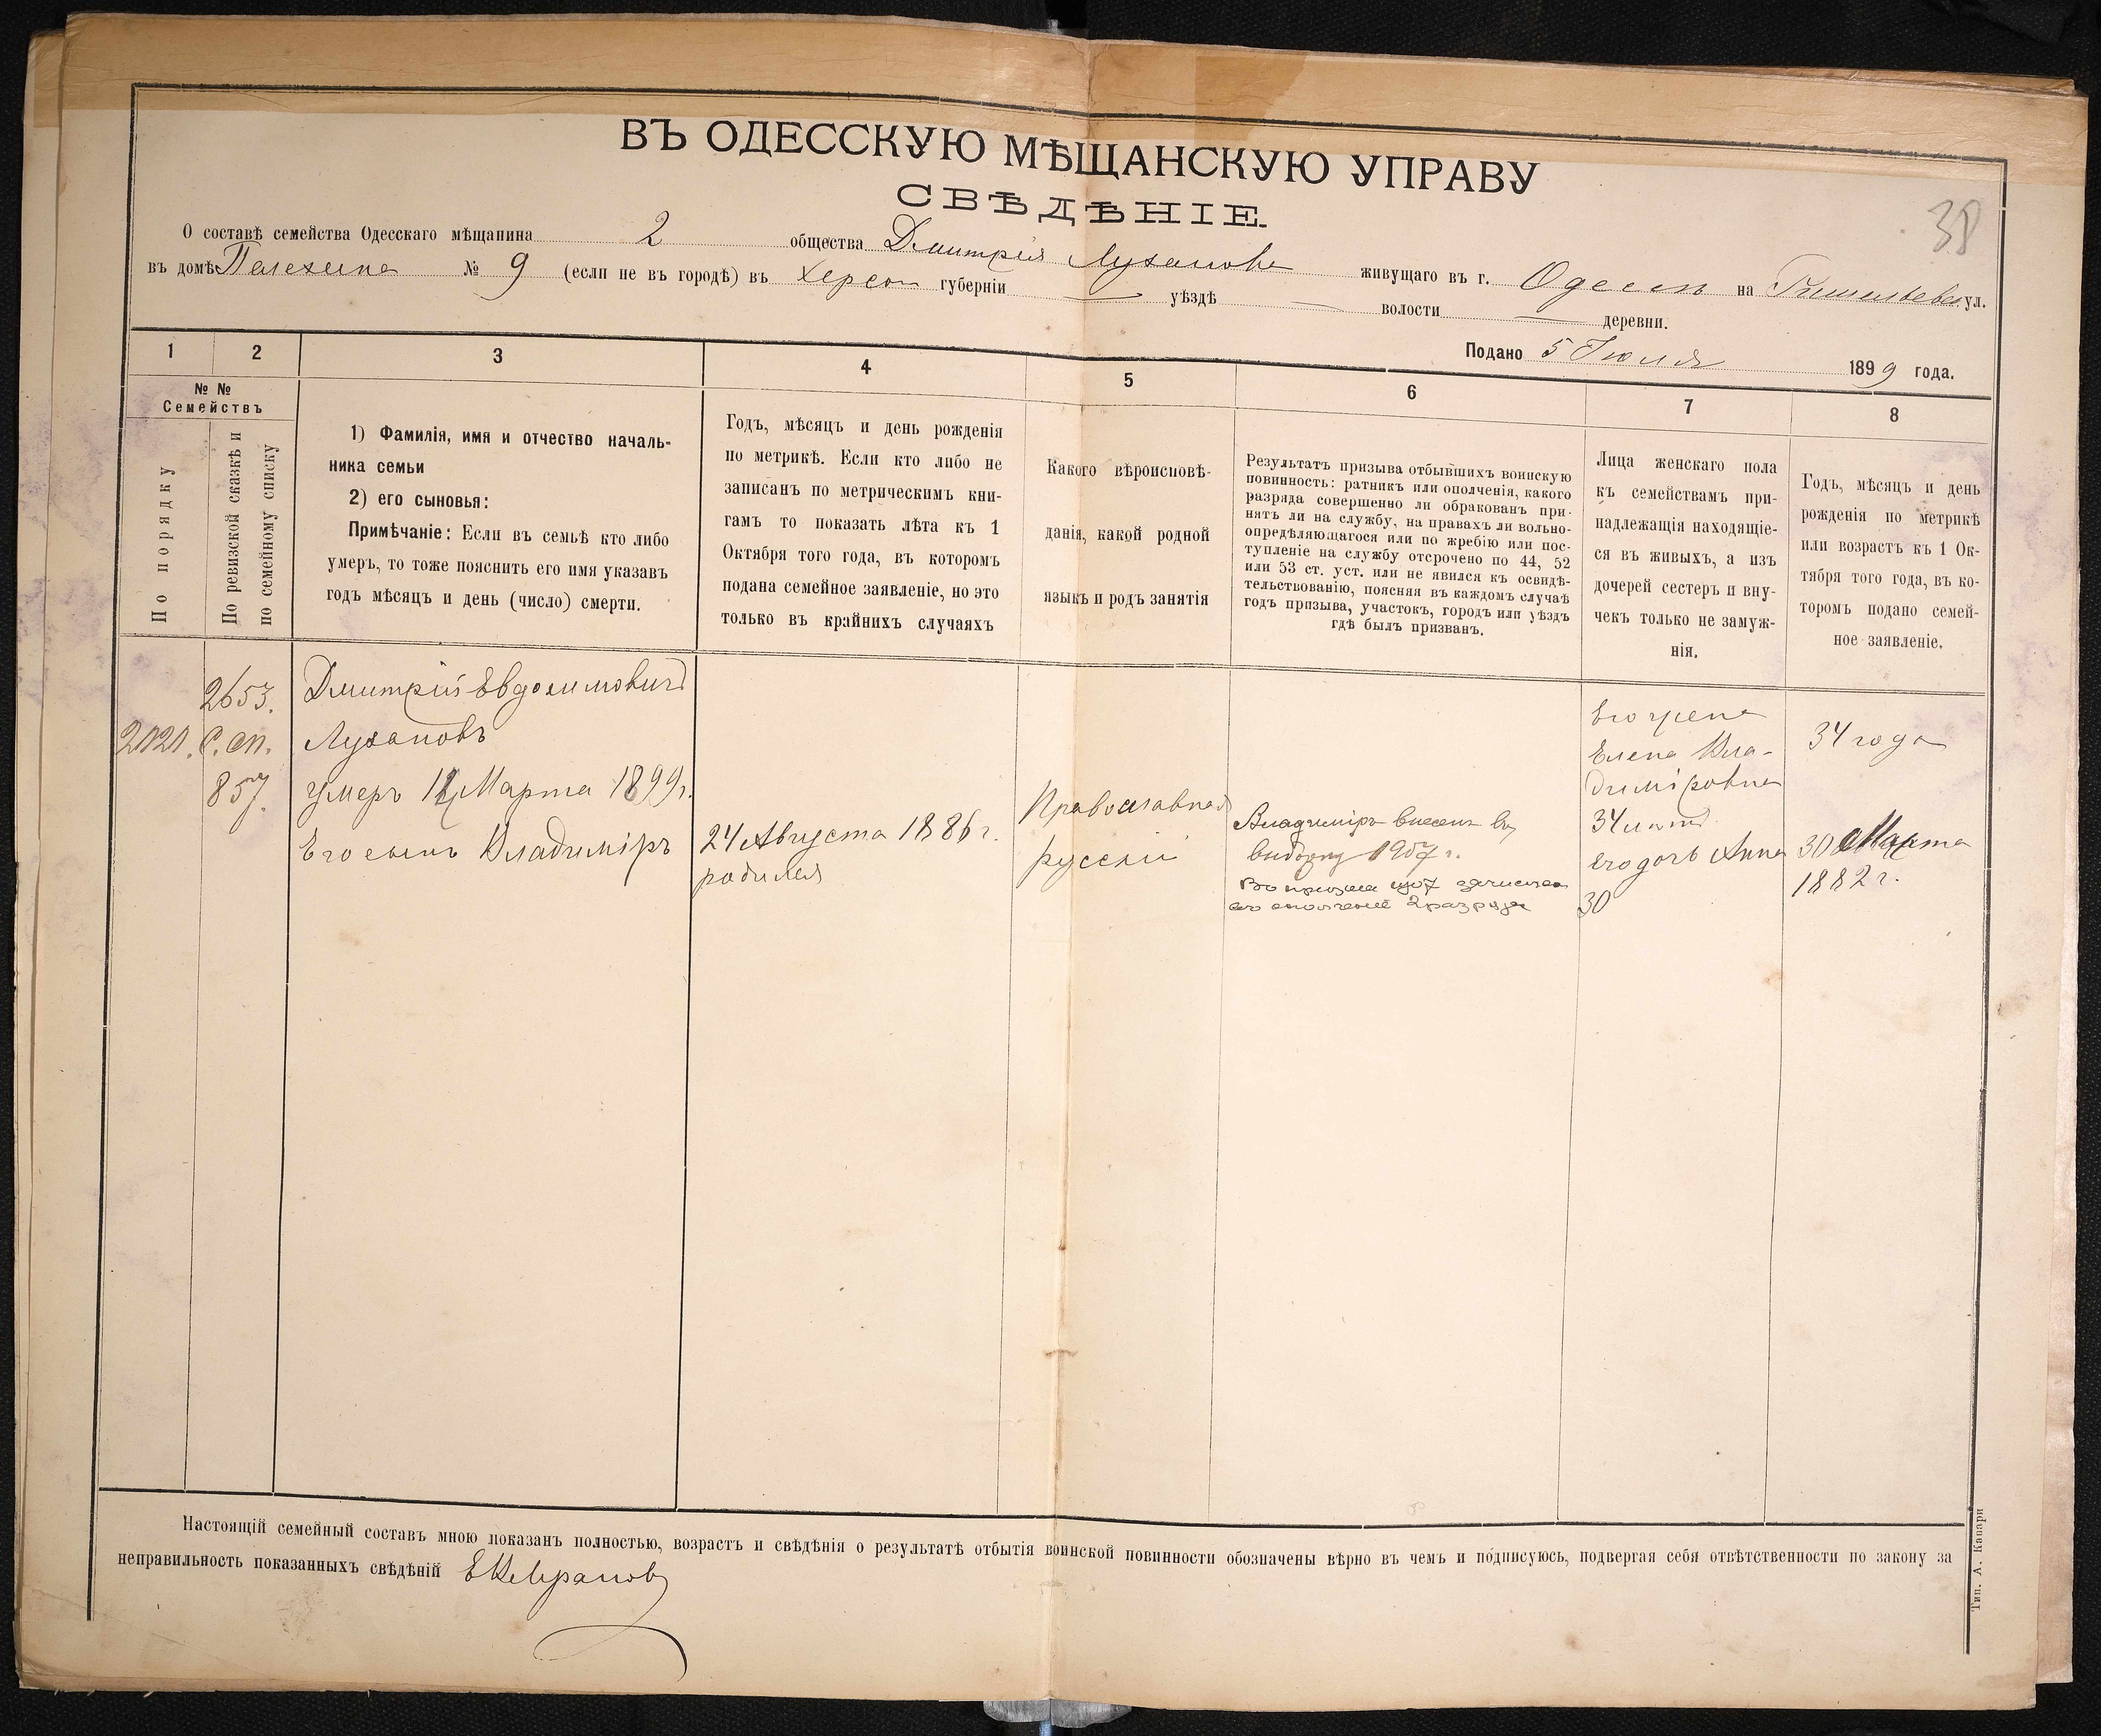 ВЪ ОДЕССКУЮ МѢЩАНСКУЮ УПРАВУ
СВѢДѢНІЕ.
38
О составѣ семейства Одесскаго мѣщанина 2 общества Дмитрія Луханова живущаго въ г. Одессѣ на ул.
въ домѣ № 9 (если не въ городѣ) въ Херсон губерніи — уѣздѣ — волости — деревни.
Подано 5 Іюля 1899 года.
1 2 3 4 5 6 7 8
№ № Семействъ
По порядку
По ревизской сказкѣ и по семейному списку
1) Фамилія, имя и отчество началь-
ника семьи
2) его сыновья:
Примѣчаніе: Если въ семьѣ кто либо
умеръ, то тоже пояснить его имя указавъ
годъ мѣсяцъ и день (число) смерти.
Годъ, мѣсяцъ и день рожденія
по метрикѣ. Если кто либо не
записанъ по метрическимъ кни-
гамъ то показать лѣта къ 1
Октября того года, въ которомъ
подана семейное заявленіе, но это
только въ крайнихъ случаяхъ
Какого вѣроисповѣ-
данія, какой родной
языкъ и родъ занятія
Результатъ призыва отбывшихъ воинскую
повинность: ратникъ или ополченія, какого
разряда совершенно ли обракованъ при-
нятъ ли на службу, на правахъ ли вольно-
опредѣляющагося или по жребію или пос-
тупленіе на службу отсрочено по 44, 52
или 53 ст. уст. или не явился къ освидѣ-
тельствованію, поясняя въ каждомъ случаѣ
годъ призыва, участокъ, городъ или уѣздъ
гдѣ былъ призванъ.
Лица женскаго пола
къ семействамъ при-
надлежащія находящіе-
ся въ живыхъ, а изъ
дочерей сестеръ и вну-
чекъ только не замуж-
нія.
Годъ, мѣсяцъ и день
рожденія по метрикѣ
или возрастъ къ 1 Ок-
тября того года, въ ко-
торомъ подано семей-
ное заявленіе.
2121.
2653.
С. сп.
857.
Дмитрій Евдокимовичъ
Лухановъ
умеръ Марта 1899 г.
Его сынъ Владиміръ
24 Августа 1886 г.
родился
Православная
русскій
Владиміръ внесенъ въ
1907 г.
2 разряда
Его жена
Елена Вла-
диміровна
34 лѣтъ
его дочь Анна
30
34 года
30 Марта
1882 г.
Настоящій семейный составъ мною показанъ полностью, возрастъ и свѣдѣнія о результатѣ отбытія воинской повинности обозначены вѣрно въ чемъ и подписуюсь, подвергая себя отвѣтственности по закону за
неправильность показанныхъ свѣдѣній
Тип. А. Капари